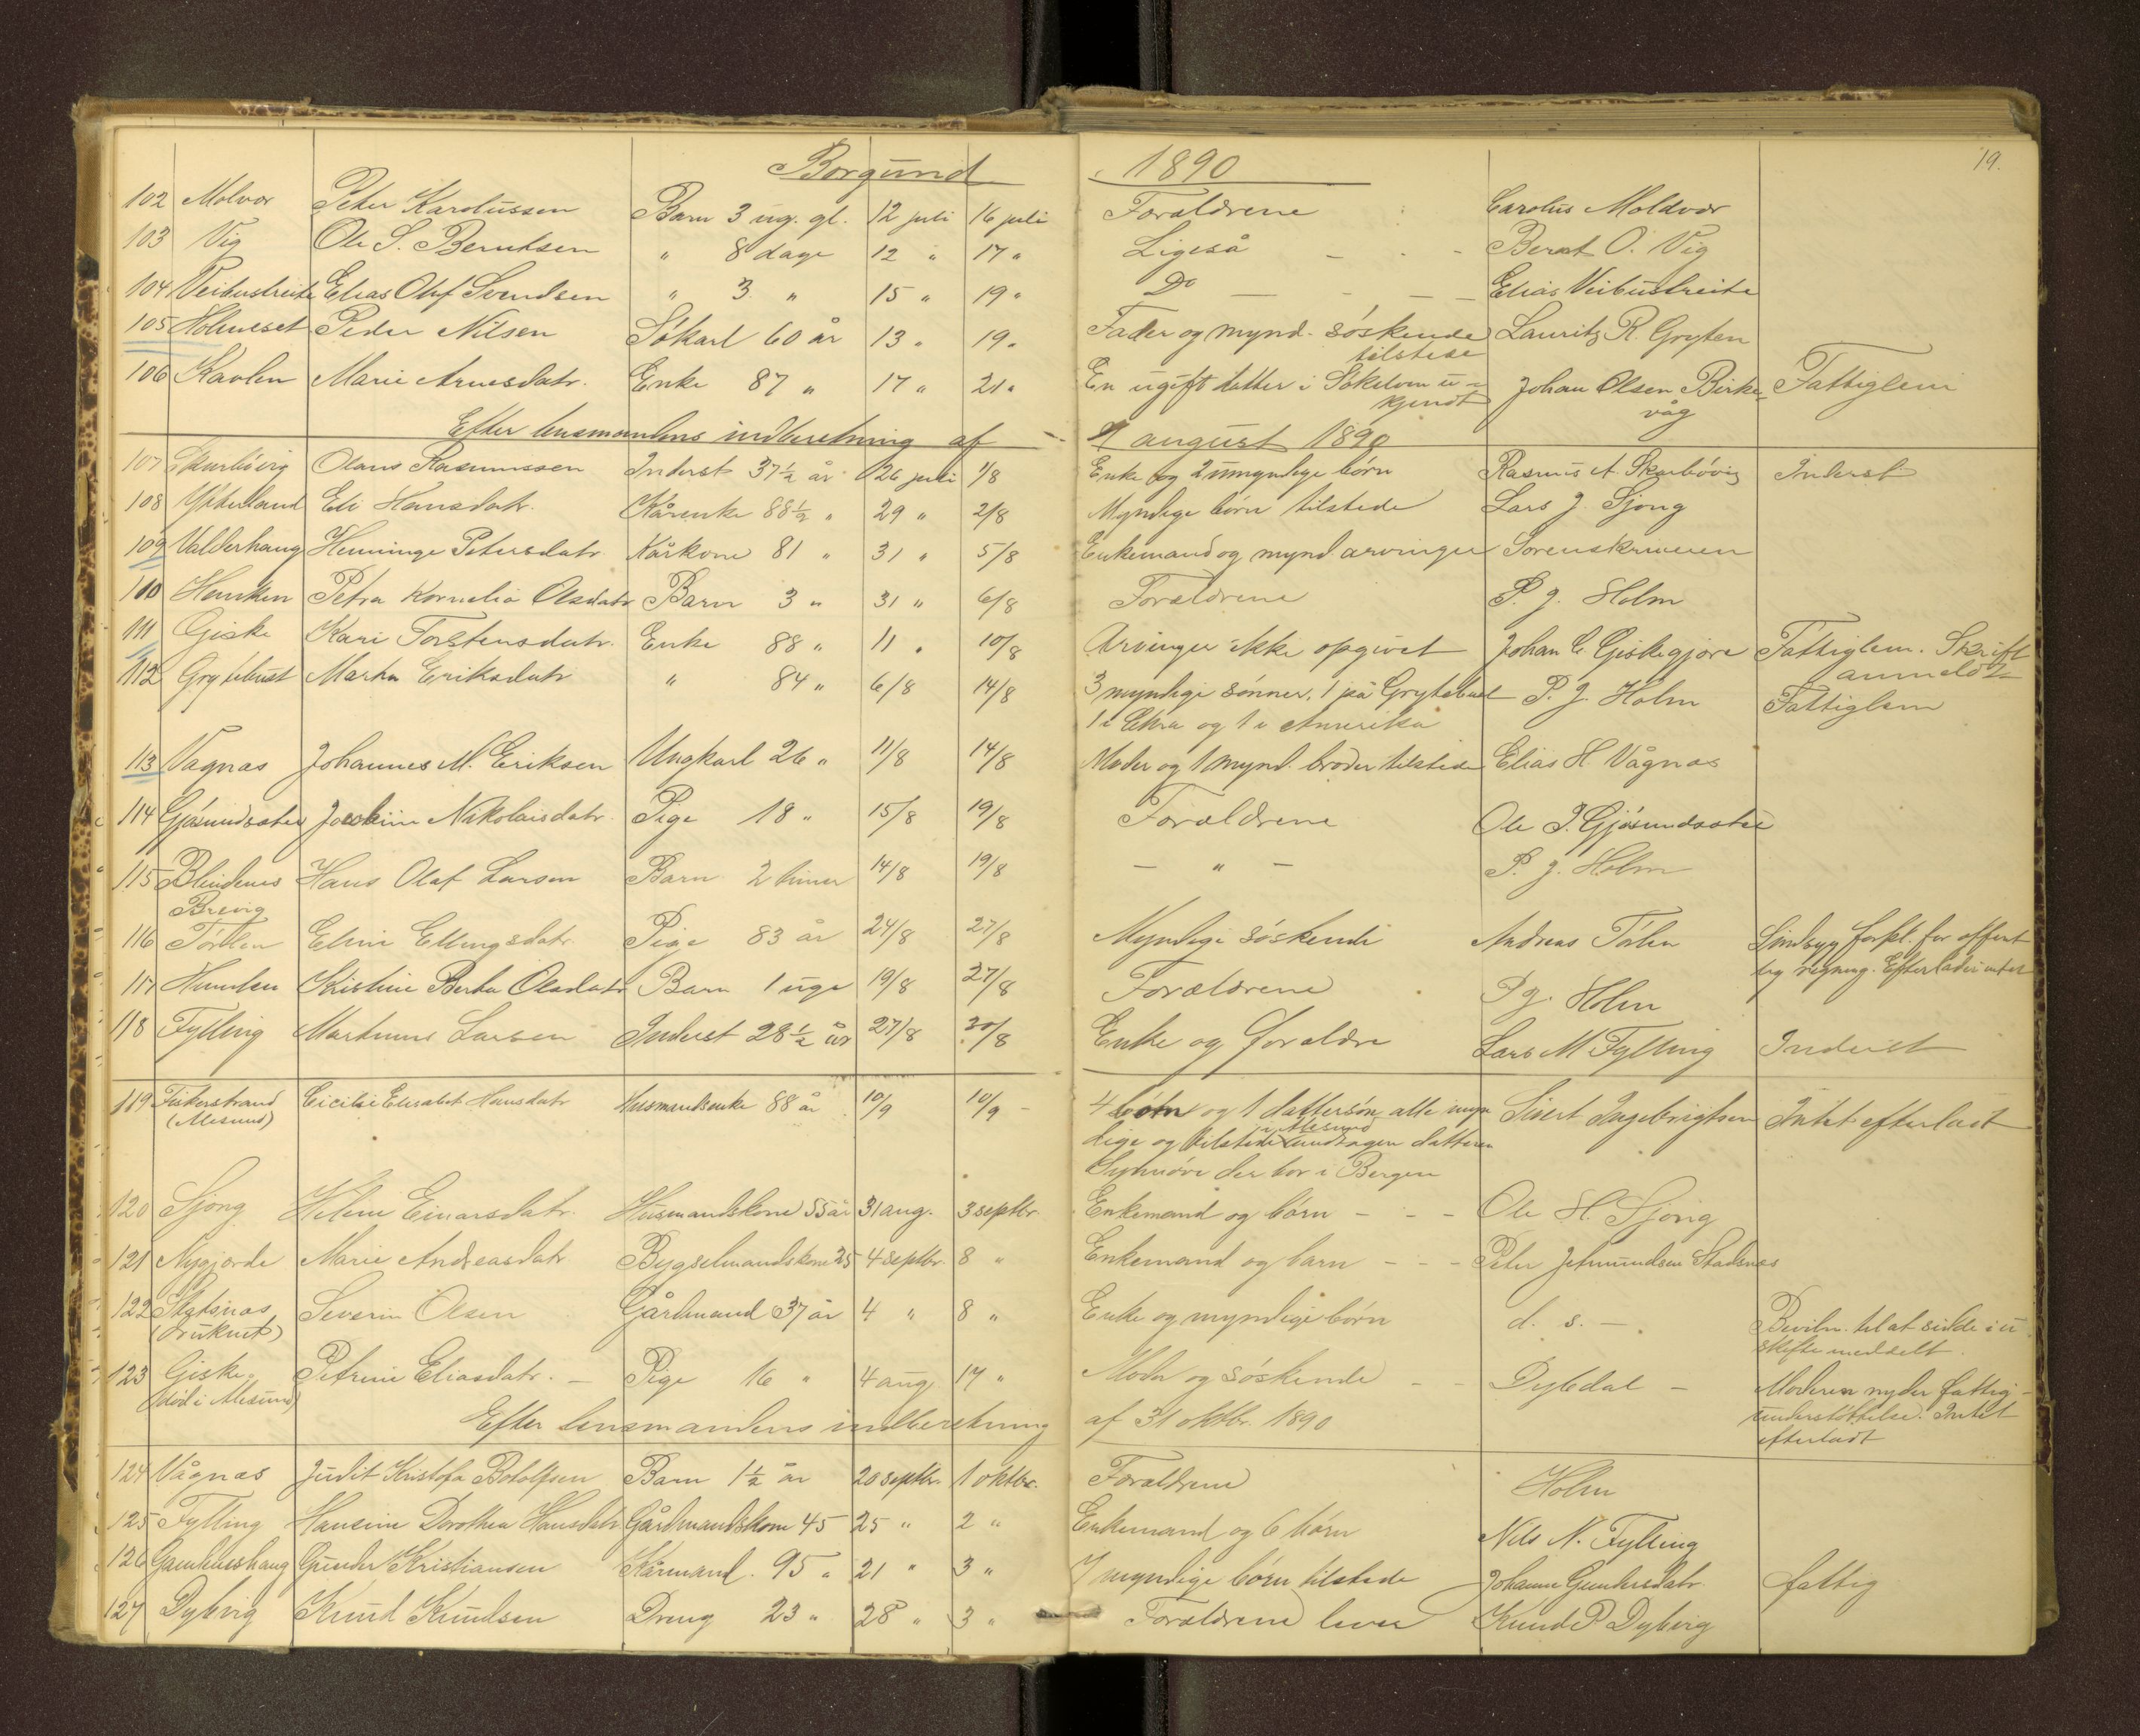 Borgund 1890 19.
102 Molvær Peter Karolussen Barn 3 ug. gl. 12 juli 16 juli Forældrene Carolus Moldvær
103 Vig Ole S. Berntsen " 8 dage 12 " 17 " Ligeså - - - Bernt O. Vig
104 Veibustreite Elias Oluf Svendsen " 3 " 15 " 19 " Do - - - Elias Veibustreite
105 Holmeset Peder Nilsen Sökarl 60 år 13 " 19 " Fader og mynd. söskende Lauritz R. Gryten
tilstede
106 Kavlen Marie Arnesdatr. Enke 87 " 17 " 21 " En ugift datter i Sökelven u- Johan Olsen Birke- Fattiglem
kjendt våg
Efter lensmandens indberetning af 9 august 1890
107 Skarbövig Olaus Rasmussen Inderst 37½ år 26 juli 1/8 Enke og 2 umyndige börn Rasmus A. Skarbövig Inderst
108 Ytterland Eli Hansdatr. Kårenke 88½ " 29 " 2/8 Myndige börn tilstede Lars J. Sjong
109 Valderhaug Henninge Petersdatr. Kårkone 81 " 31 " 5/8 Enkemand og mynd arvinger Sorenskriveren
110 Humlen Petra Kornelia Olsdatr Barn 3 " 31 " 6/8 Forældrene P. J. Holm
111 Giske Kari Torstensdatr. Enke 88 " 11 " 10/8 Arvinger ikke opgivet Johan C. Giskegjøre Fattiglem. Skift
anmeldt
112 Grytebust Marta Eriksdatr " 84 " 6/8 14/8 3 myndige sönner, 1 på Grytebust P. J. Holm Fattiglem
1 i Ekra og 1 i Amerika
113 Vågnæs Johannes M. Eriksen Ungkarl 26 " 11/8 14/8 Moder og 1 mynd. broder tilstede Elias H Vågnæs
114 Gjösundsæter Jacobine Nikolaisdatr. Pige 18 " 15/8 19/8 Forældrene Ole J. Gjösundsæter
115 Blindenes Hans Olaf Larsen Barn 2 timer 14/8 19/8 - " - P. J. Holm
Brevig
116 Törlen Eline Ellingsdatr. Pige 83 år 24/8 27/8 Myndige söskende Andreas Törlen Sindsyg forpl. for offent
lig regning. Efterlader intet
117 Humlen Kristine Berta Olsdatr Barn 1 uge 19/8 27/8 Forældrene P J. Holm
118 Fylling Martinus Larsen Inderst 28½ år 27/8 30/8 Enke og forældre Lars M Fylling Inderst
119 Fiskerstrand Cicilie Elisabet Hansdatr Husmandsenke 88 år 10/9 10/9 4 börn og 1 dattersön alle myn Sivert Ingebrigtsen Intet efterladt
(Alesund) dige og tilstede i Alesund undtagen datteren
Synnöve der bor i Bergen
120 Sjong Helene Einarsdatr. Husmandskone 55 år 31 aug. 3 septbr. Enkemand og börn - - - Ole H. Sjong
121 Nygjorde Marie Andreasdatr Bygselmandskone 35 4 septbr. 8 " Enkemand og barn - - - Peter Jetmundsen Stadsnes
122 Statsnæs Severin Olsen Gårdmand 37 år 4 " 8 " Enke og myndige börn d. s. - Beviln. til at sidde i u
(druknet) skifte meddelt.
123 Giske Petrine Eliasdatr. - Pige 16 " 4 aug. 17 " Moder og söskende - - Dybdal - Moderen nyder fattig-
(död i Alesund) understöttelse. Intet
efterladt
Efter lensmandens indberetning af 31 oktbr. 1890
124 Vågnæs Judit Kristofa Botolfsen Barn 1½ år 20 septbr. 1 oktbr. Forældrene Holm
125 Fylling Hansine Dorothea Hansdatr. Gårdmandskone 45 25 " 2 " Enkemand og 6 börn Nils N. Fylling
126 Gamlemshaug Gunder Kristiansen Kårmand. 95 " 21 " 3 " 7 myndige börn tilstede Johanne Gundersdatr. fattig
127 Dybvig Knud Knudsen Dreng 23 " 28 " 3 " Forældrene lever Knud P Dybvig